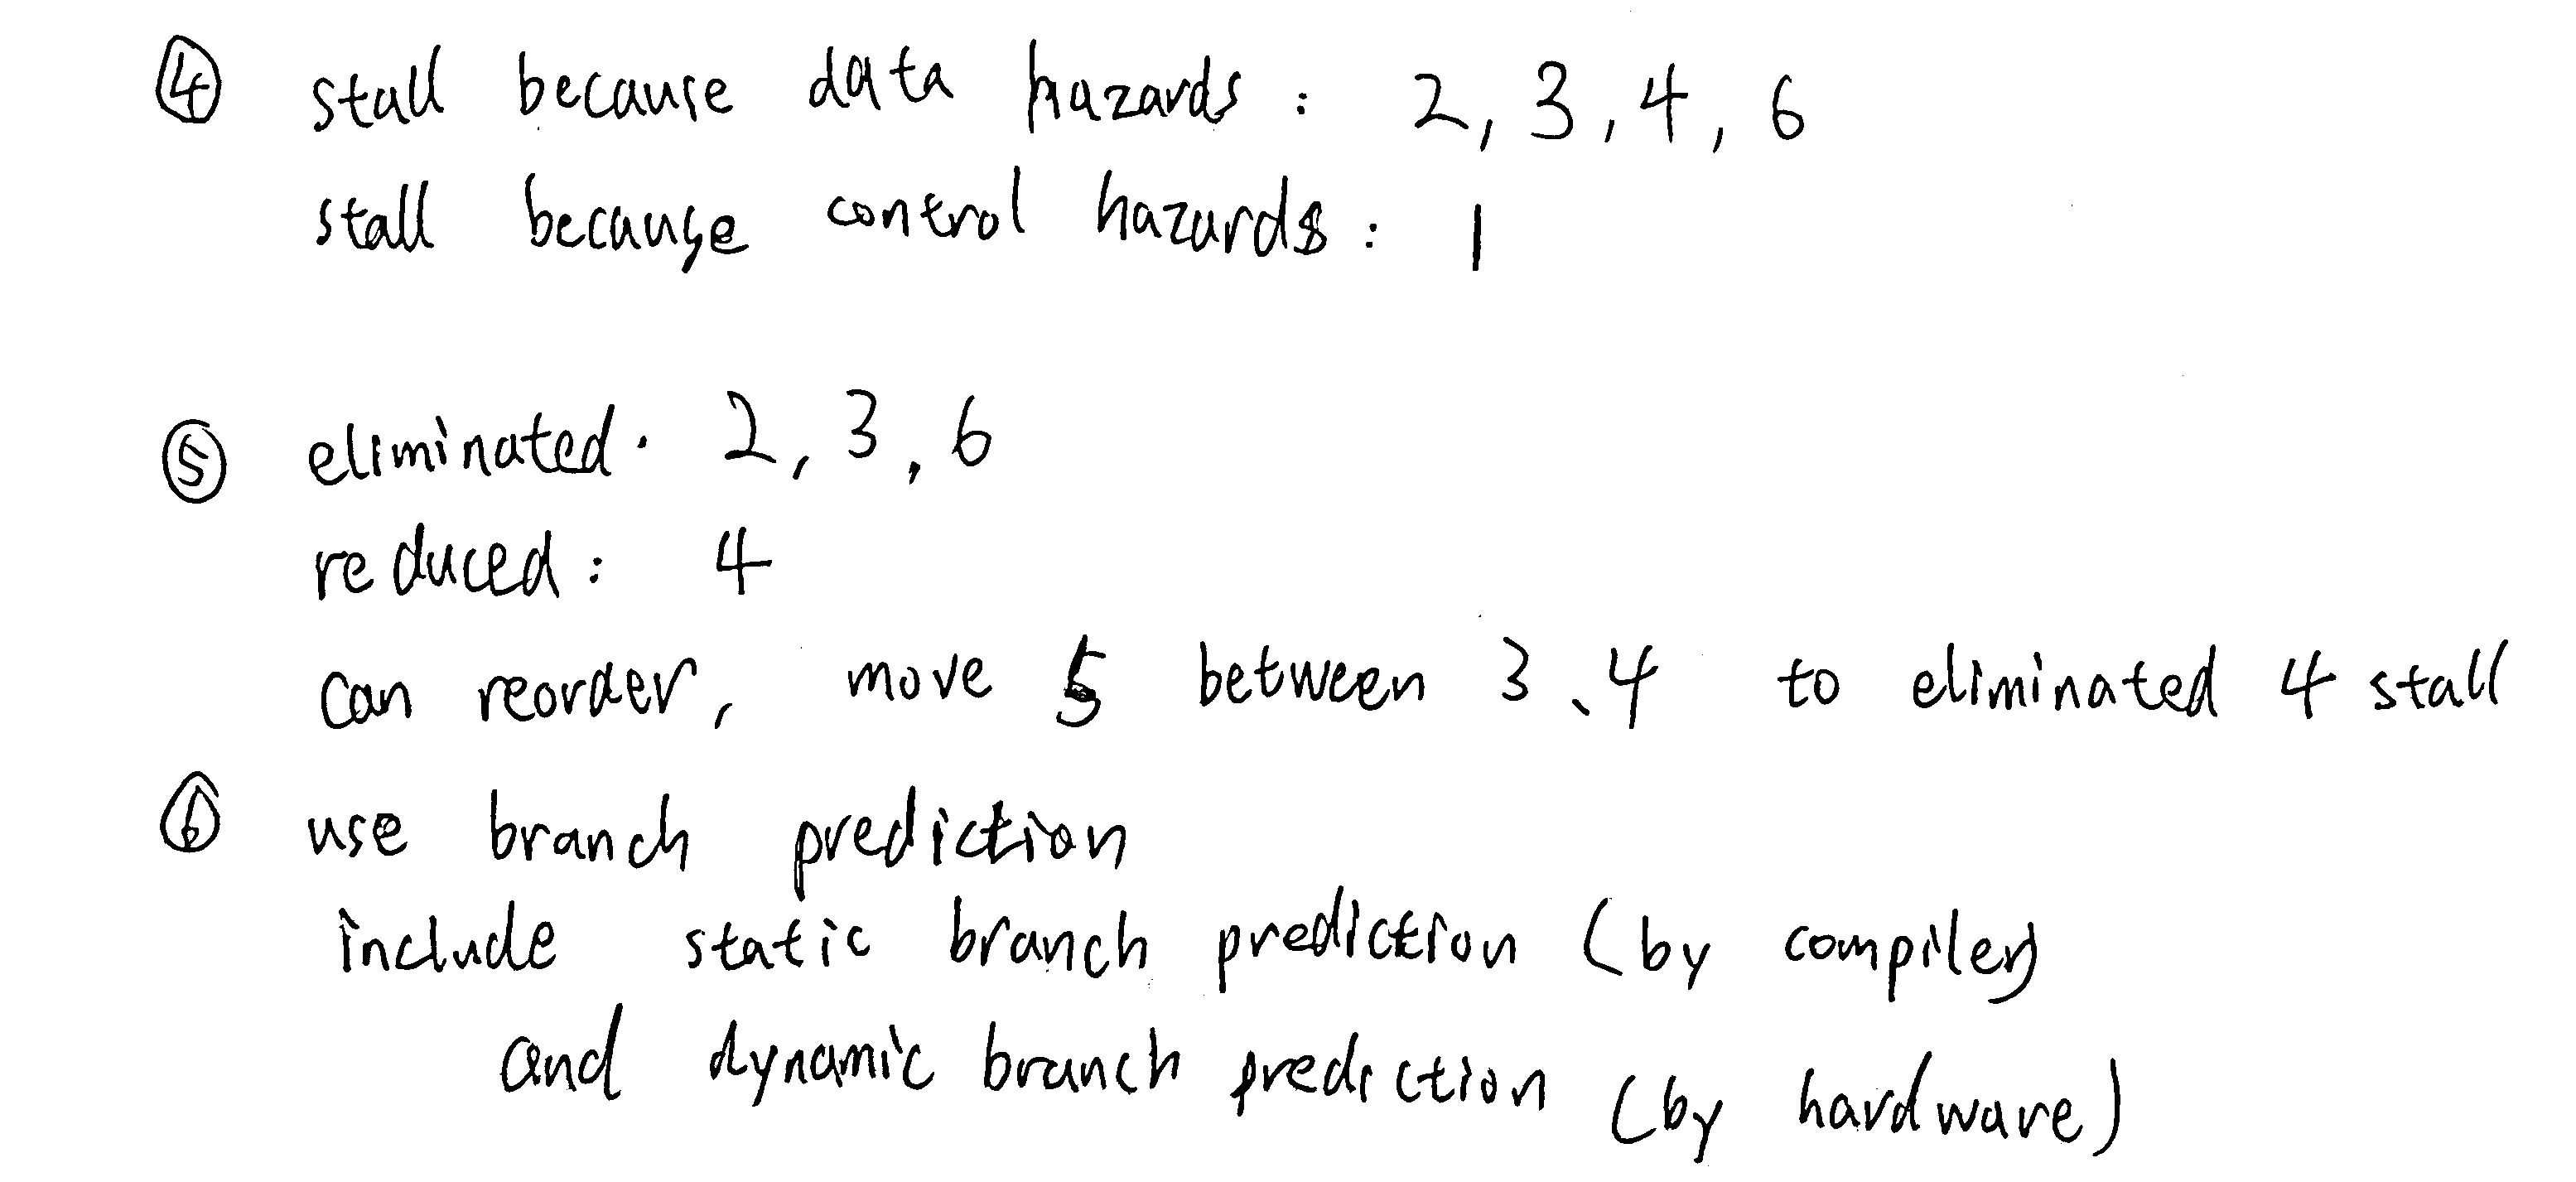 ④ stall because data hazards : 2, 3, 4, 6
stall because control hazards : 1
⑤ eliminated. 2, 3, 6
reduced : 4
can reorder, move 5 between 3、4 to eliminated 4 stall
⑥ use branch prediction
include static branch prediction (by compiler)
and dynamic branch prediction (by hardware)